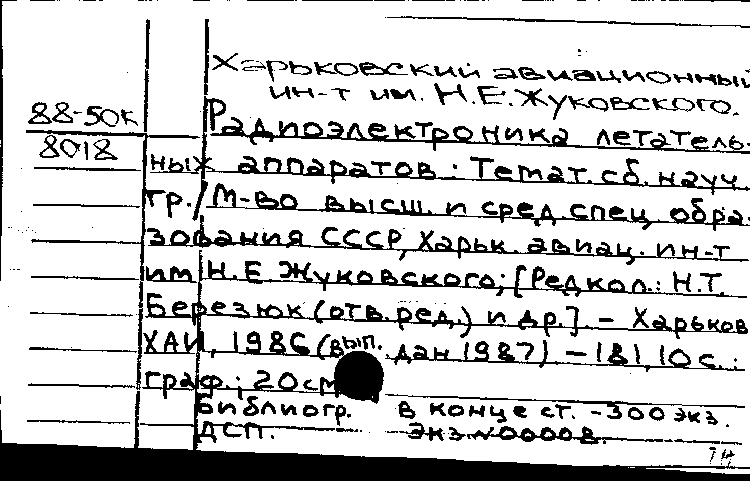 Харьковский авиационный
ин-т им. Н.Е.Жуковского.
88-50к
8018
Радиоэлектроника летатель-
ных аппаратов: Темат. сб. науч.
тр./М-во высш. и сред. спец. обра-
зования СССР, Харьк. авиац. ин-т
им Н.Е Жуковского; [Редкол.: Н.Т.
Березюк (отв. ред.) и др.] - Харьков
ХАИ, 1986 (вып. дан 1987) - 181, 10 с.:
граф.; 20см
Библиогр. в конце ст. - 300 экз.
ДСП. Экз N00008.